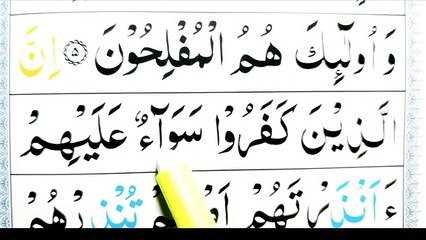 وَاُولٰٓئِكَ هُمُ الْمُفْلِحُوْنَ ۝۵ اِنَّ
الَّذِيْنَ كَفَرُوْا سَوَآءٌ عَلَيْهِمْ
ءَاَنْذَرْتَهُمْ اَمْ لَمْ تُنْذِرْهُمْ